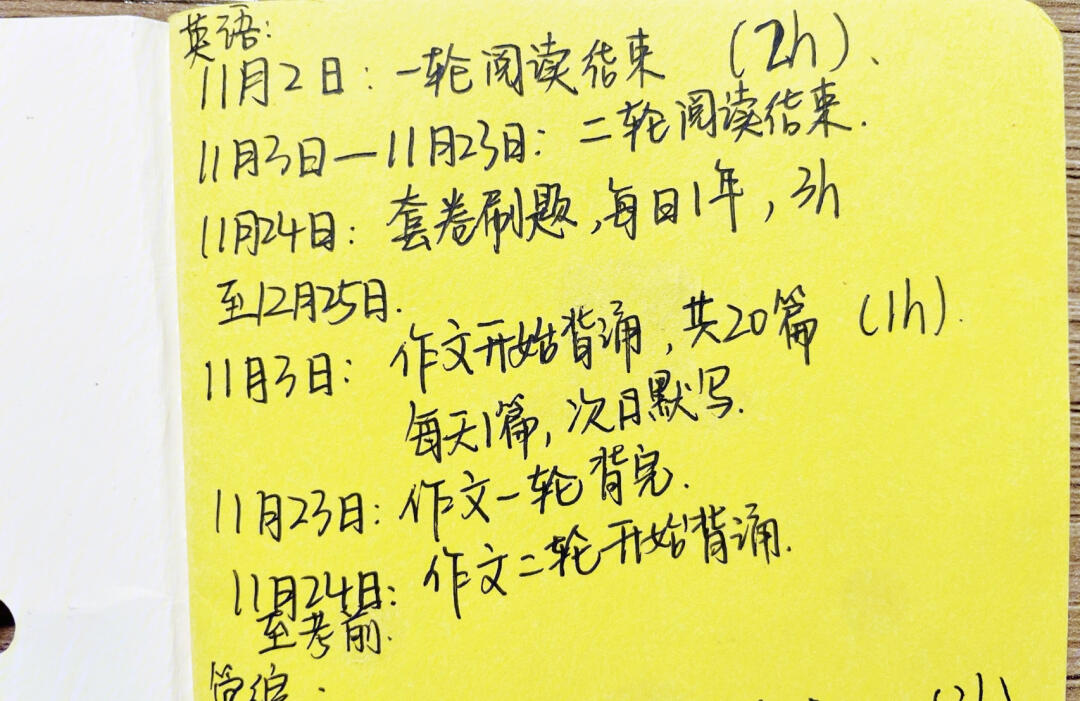 英语:
11月2日: 一轮阅读结束 (2h).
11月3日—11月23日: 二轮阅读结束.
11月24日: 套卷刷题,每日1年, 3h
至12月25日.
11月3日: 作文开始背诵, 共20篇 (1h).
每天1篇, 次日默写.
11月23日: 作文一轮背完.
11月24日: 作文二轮开始背诵.
至考前.